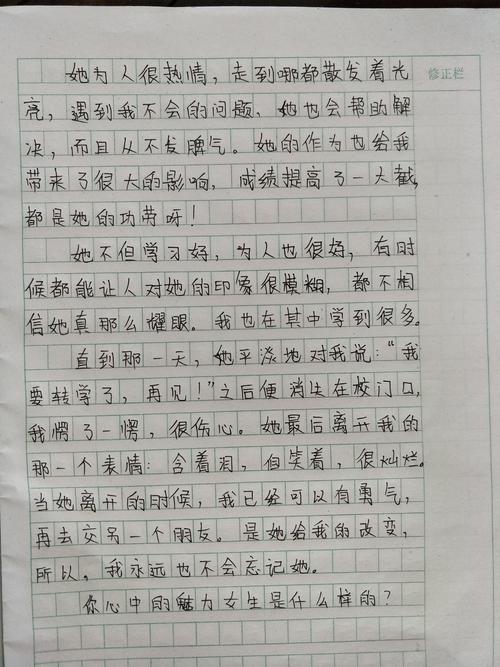 修正栏
她为人很热情，走到哪都散发着光
亮，遇到我不会的问题，她也会帮助解
决，而且从不发脾气。她的作为也给我
带来了很大的影响，成绩提高了一大截，
都是她的功劳呀！
她不但学习好，为人也很好，有时
候都能让人对她的印象很模糊，都不相
信她真那么耀眼。我也在其中学到很多。
直到那一天，她平淡地对我说：“我
要转学了，再见！”之后便消失在校门口，
我愣了一愣，很伤心。她最后离开我的
那一个表情：含着泪，但笑着，很灿烂。
当她离开的时候，我已经可以有勇气，
再去交另一个朋友。是她给我的改变，
所以，我永远也不会忘记她。
你心中的魅力女生是什么样的？